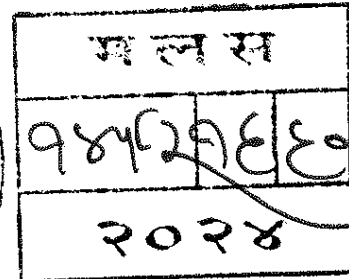 म ल स
१४५८२ १६ ६०
२०२४